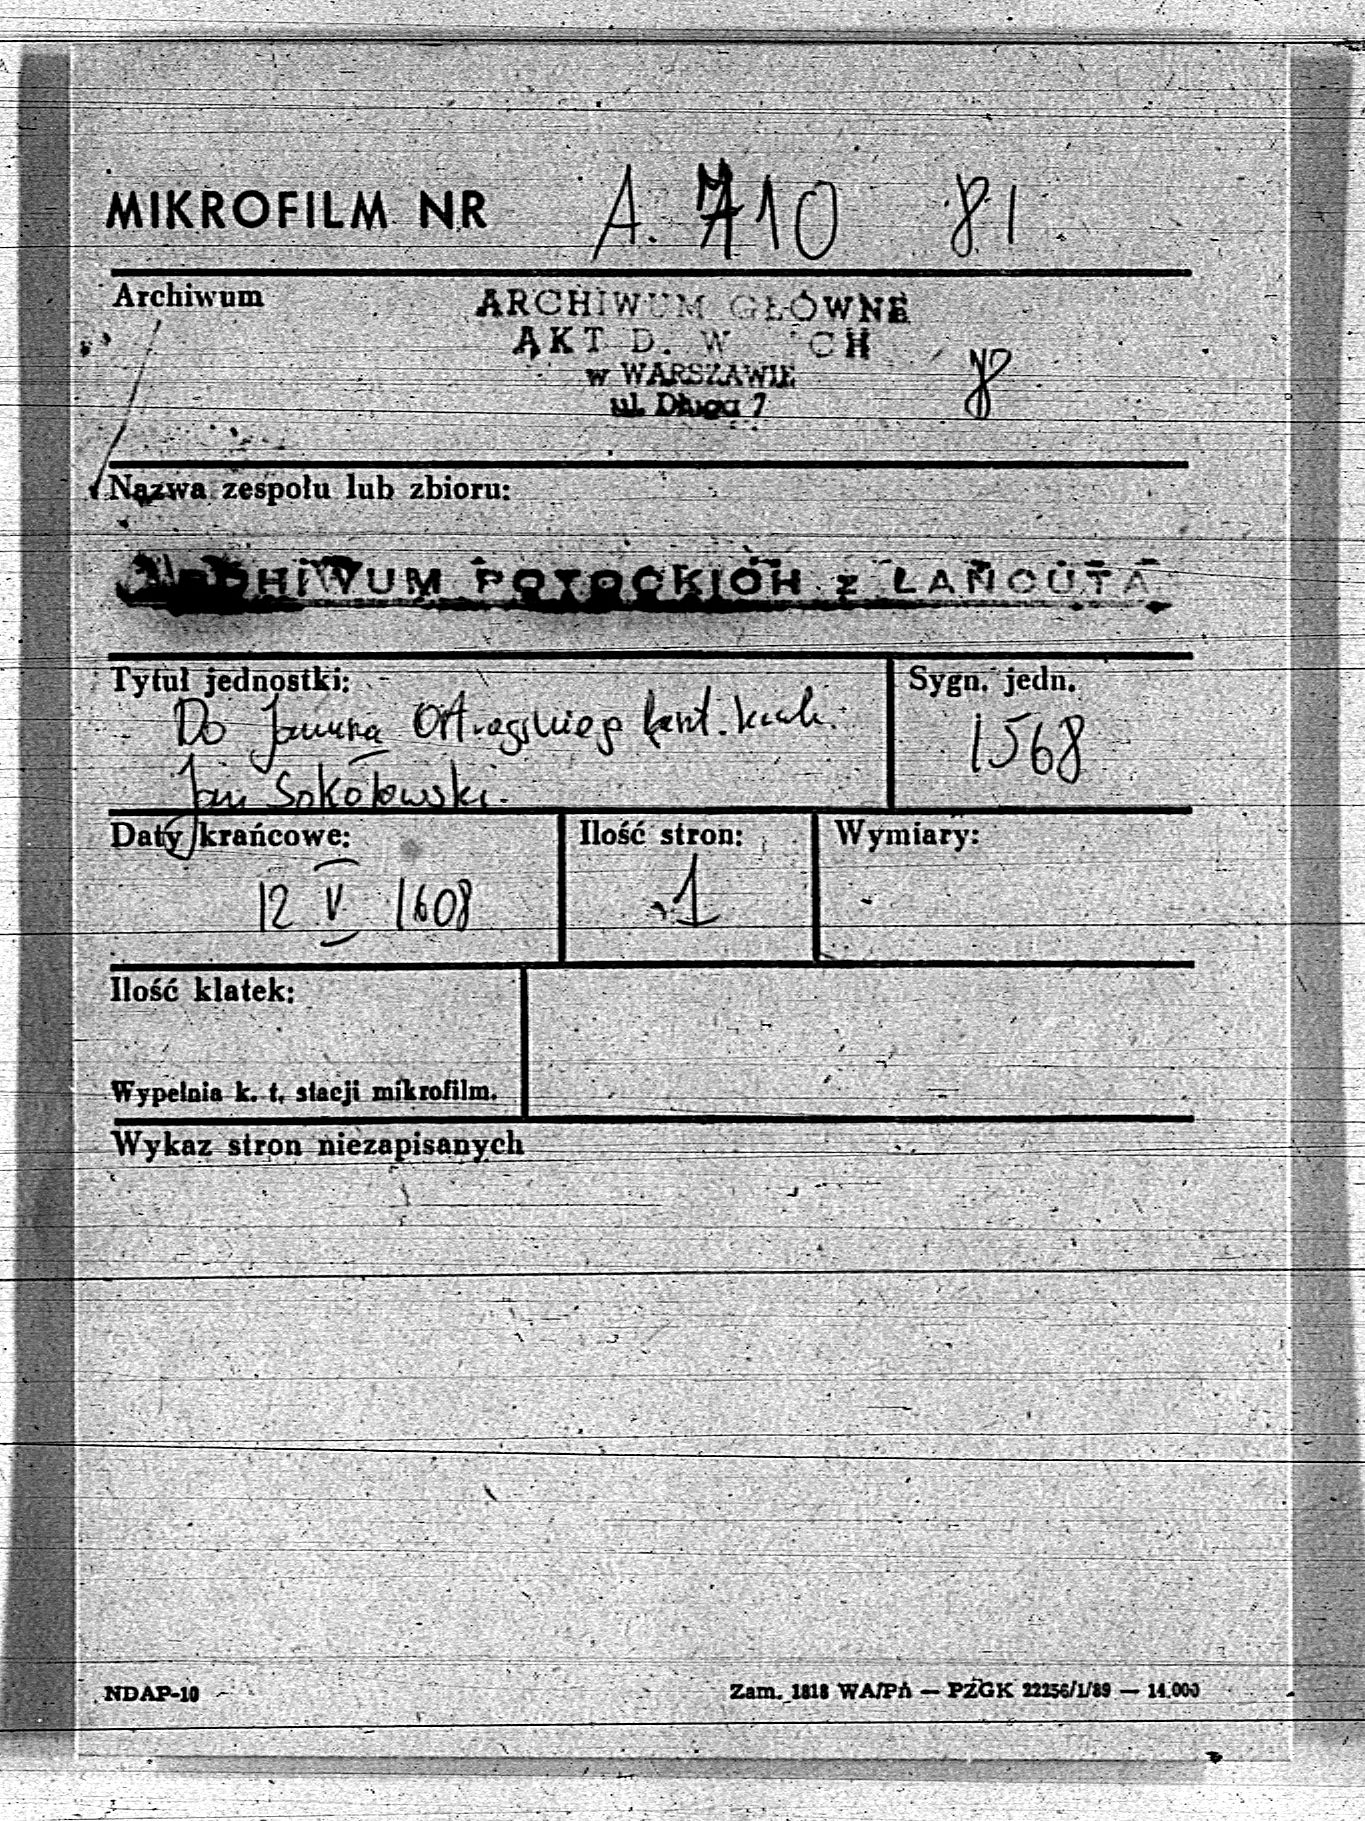 MIKROFILM NR A. 710 81
Archiwum
ARCHIWUM GŁÓWNE
AKT D. W CH
w WARSZAWIE
ul. Długa 7
8
Nazwa zespołu lub zbioru:
ARCHIWUM POTOCKICH z ŁAŃCUTA
Tytuł jednostki:
Sygn. jedn.
Do Janusza Ostrogskiego kaszt. krak.
1568
Jan Sokołowski.
Daty krańcowe:
Ilość stron:
Wymiary:
12 V 1608
1
Ilość klatek:
Wypełnia k. t. stacji mikrofilm.
Wykaz stron niezapisanych
NDAP-10
Zam. 1818 WA/Pń — PZGK 22256/1/89 — 14.000